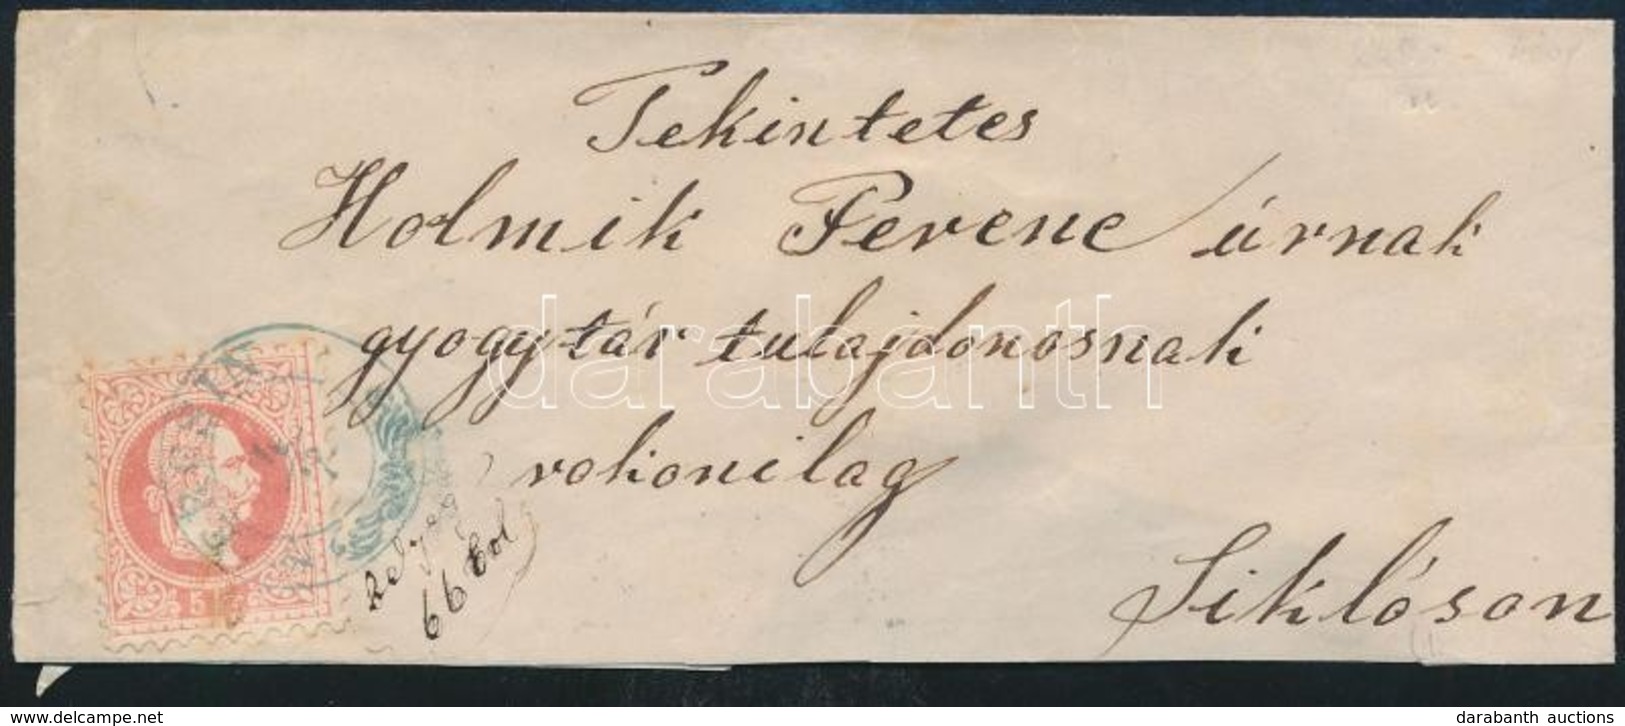 Tekintetes
Holmik Ferenc úrnak
gyogytár tulajdonosnak
rokonilag
Siklóson
66
5
darabanth
darabanth auctions